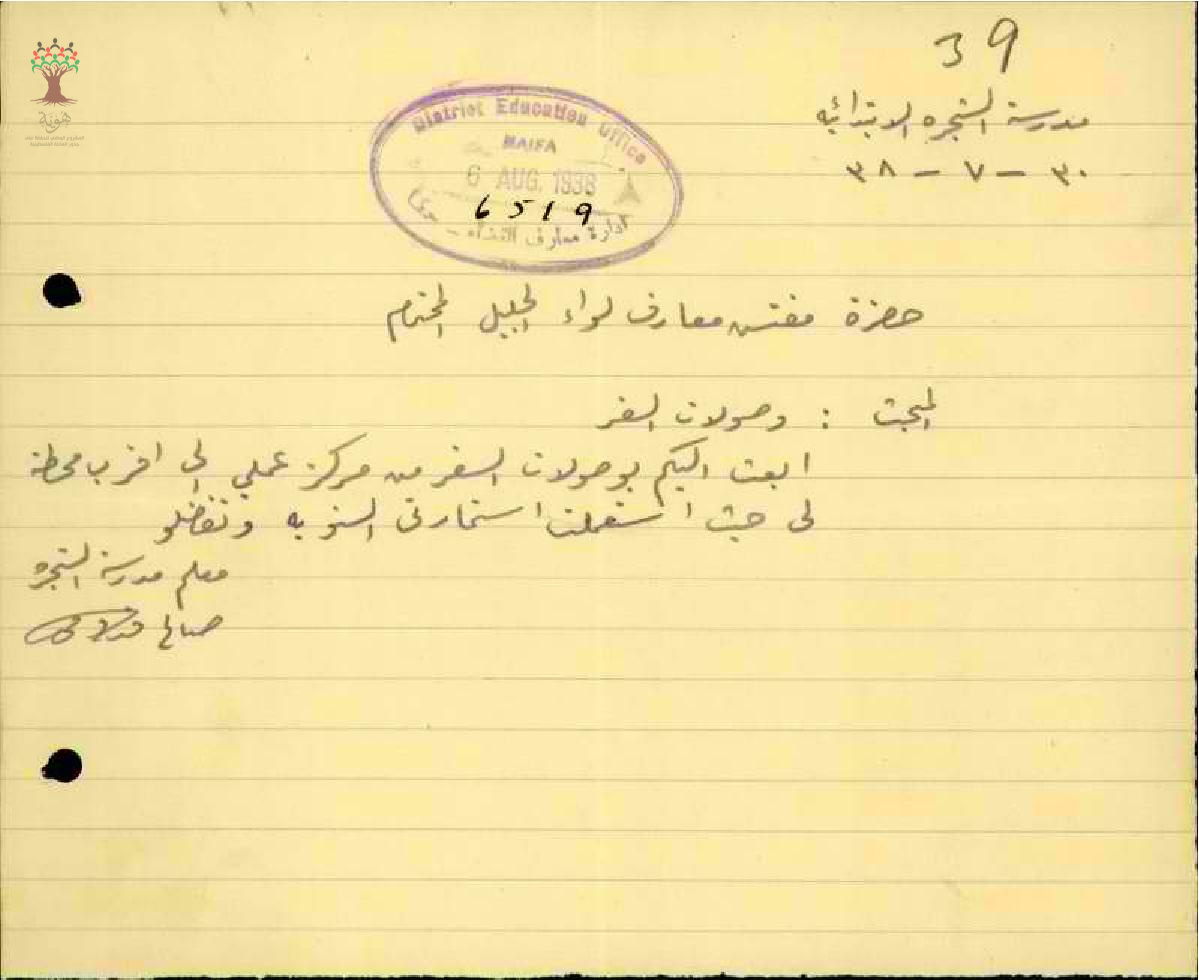 39
مدرسة الشجره الابتدائيه
٣٠ - ٧ - ٣٨
District Education Office
HAIFA
6 AUG. 1938
6519
ادارة معارف القضاء - حيفا
هوية
حضرة مفتش معارف لواء الجليل المحترم
المبحث : وصولات السفر
ابعث اليكم بوصولات السفر من مركز عملي الى اقرب محطة
لي حيث استعملت استمارتي السنويه وتفضلو
معلم مدرسة الشجره
صالح